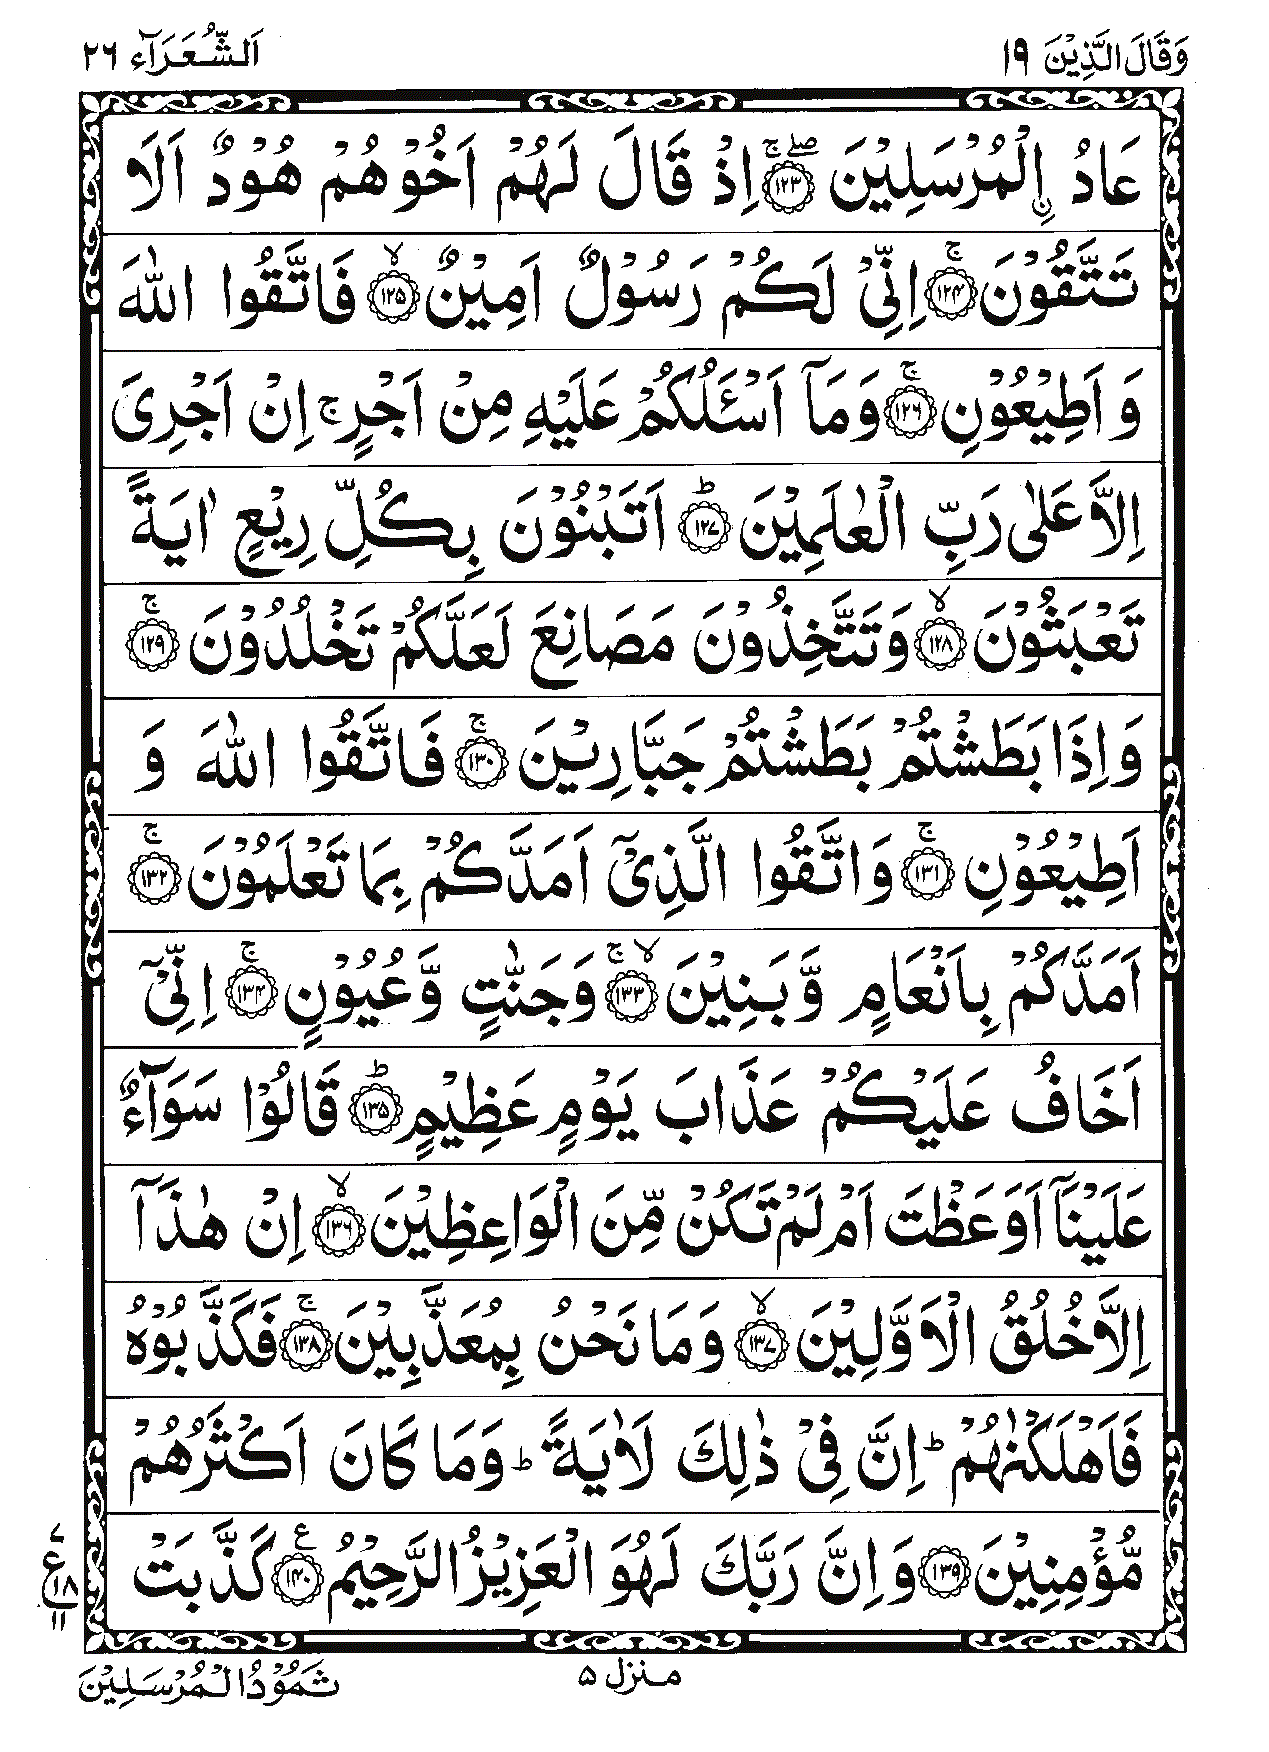 وَقَالَ الَّذِيْنَ ١٩
اَلشُّعَرَآء ٢٦
عَادُ ۨالْمُرْسَلِيْنَ ۚۖ‏﴿١٢٣﴾ اِذْ قَالَ لَهُمْ اَخُوْهُمْ هُوْدٌ اَلَا
تَتَّقُوْنَ ۚ‏﴿١٢٤﴾ اِنِّىْ لَكُمْ رَسُوْلٌ اَمِيْنٌ ۙ‏﴿١٢٥﴾ فَاتَّقُوا اللّٰهَ
وَ اَطِيْعُوْنِ ۚ‏﴿١٢٦﴾ وَمَآ اَسْـَٔلُكُمْ عَلَيْهِ مِنْ اَجْرٍ ۚ اِنْ اَجْرِىَ
اِلَّا عَلٰى رَبِّ الْعٰلَمِيْنَ ؕ‏﴿١٢٧﴾ اَتَبْنُوْنَ بِكُلِّ رِيْعٍ اٰيَةً
تَعْبَثُوْنَ ۙ‏﴿١٢٨﴾ وَتَتَّخِذُوْنَ مَصَانِعَ لَعَلَّكُمْ تَخْلُدُوْنَ ۚ‏﴿١٢٩﴾
وَاِذَا بَطَشْتُمْ بَطَشْتُمْ جَبَّارِيْنَ ۚ‏﴿١٣٠﴾ فَاتَّقُوا اللّٰهَ وَ
اَطِيْعُوْنِ ۚ‏﴿١٣١﴾ وَاتَّقُوا الَّذِىْۤ اَمَدَّكُمْ بِمَا تَعْلَمُوْنَ ۚ‏﴿١٣٢﴾
اَمَدَّكُمْ بِاَنْعَامٍ وَّبَنِيْنَ ۚۙ‏﴿١٣٣﴾ وَجَنّٰتٍ وَّعُيُوْنٍ ۚ‏﴿١٣٤﴾ اِنِّىْۤ
اَخَافُ عَلَيْكُمْ عَذَابَ يَوْمٍ عَظِيْمٍ ؕ‏﴿١٣٥﴾ قَالُوْا سَوَآءٌ
عَلَيْنَاۤ اَوَعَظْتَ اَمْ لَمْ تَكُنْ مِّنَ الْوَاعِظِيْنَ ۙ‏﴿١٣٦﴾ اِنْ هٰذَاۤ
اِلَّا خُلُقُ الْاَوَّلِيْنَ ۙ‏﴿١٣٧﴾ وَمَا نَحْنُ بِمُعَذَّبِيْنَ ۚ‏﴿١٣٨﴾ فَكَذَّبُوْهُ
فَاَهْلَكْنٰهُمْ ؕ اِنَّ فِىْ ذٰلِكَ لَاٰيَةً ؕ وَمَا كَانَ اَكْثَرُهُمْ
مُّؤْمِنِيْنَ ‏﴿١٣٩﴾ وَاِنَّ رَبَّكَ لَهُوَ الْعَزِيْزُ الرَّحِيْمُ ع‏﴿١٤٠﴾ كَذَّبَتْ
٧
ع ١٨
١١
منزل ٥
ثَمُوْدُ الْمُرْسَلِيْنَ